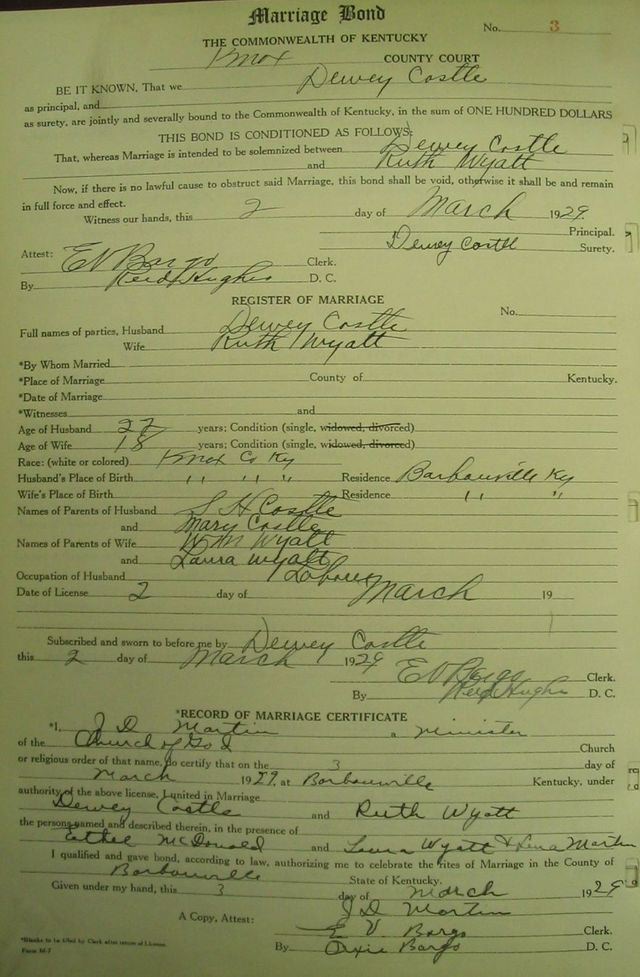 Marriage Bond
No. 3
THE COMMONWEALTH OF KENTUCKY
Knox COUNTY COURT
BE IT KNOWN, That we Dewey Costle
as principal, and
as surety, are jointly and severally bound to the Commonwealth of Kentucky, in the sum of ONE HUNDRED DOLLARS
THIS BOND IS CONDITIONED AS FOLLOWS:
That, whereas Marriage is intended to be solemnized between Dewey Costle
and Ruth Wyatt
Now, if there is no lawful cause to obstruct said Marriage, this bond shall be void, otherwise it shall be and remain
in full force and effect.
Witness our hands, this 2 day of March 1929.
Principal.
Dewey Costle Surety.
Attest: E V Bargo Clerk.
By Reid Hughes D. C.
REGISTER OF MARRIAGE
No.
Full names of parties, Husband Dewey Costle
Wife Ruth Wyatt
*By Whom Married
*Place of Marriage County of Kentucky.
*Date of Marriage
*Witnesses and
Age of Husband 22 years; Condition (single, widowed, divorced)
Age of Wife 18 years; Condition (single, widowed, divorced)
Race: (white or colored) Knox Co Ky
Husband's Place of Birth " " " Residence Barbourville Ky
Wife's Place of Birth Residence " "
Names of Parents of Husband S H Costle
and Mary Costle
Names of Parents of Wife Wm Wyatt
and Laura Wyatt
Occupation of Husband Laborer
Date of License 2 day of March 19
Subscribed and sworn to before me by Dewey Costle
this 2 day of March 1929
E V Bargo Clerk.
By Reid Hughes D. C.
*RECORD OF MARRIAGE CERTIFICATE
*I, J D Martin a Minister
of the Church of God Church
or religious order of that name, do certify that on the 3 day of
March 1929. at Barbourville Kentucky, under
authority of the above license, I united in Marriage
Dewey Costle and Ruth Wyatt
the persons named and described therein, in the presence of
Ethel McDonald and Laura Wyatt & Lena Martin
I qualified and gave bond, according to law, authorizing me to celebrate the rites of Marriage in the County of
Barbourville State of Kentucky.
Given under my hand, this 3 day of March 1929
J D Martin
A Copy, Attest: E V Bargo Clerk.
By Orxie Bargo D. C.
*Blanks to be filed by Clerk after return of License
Form M-7